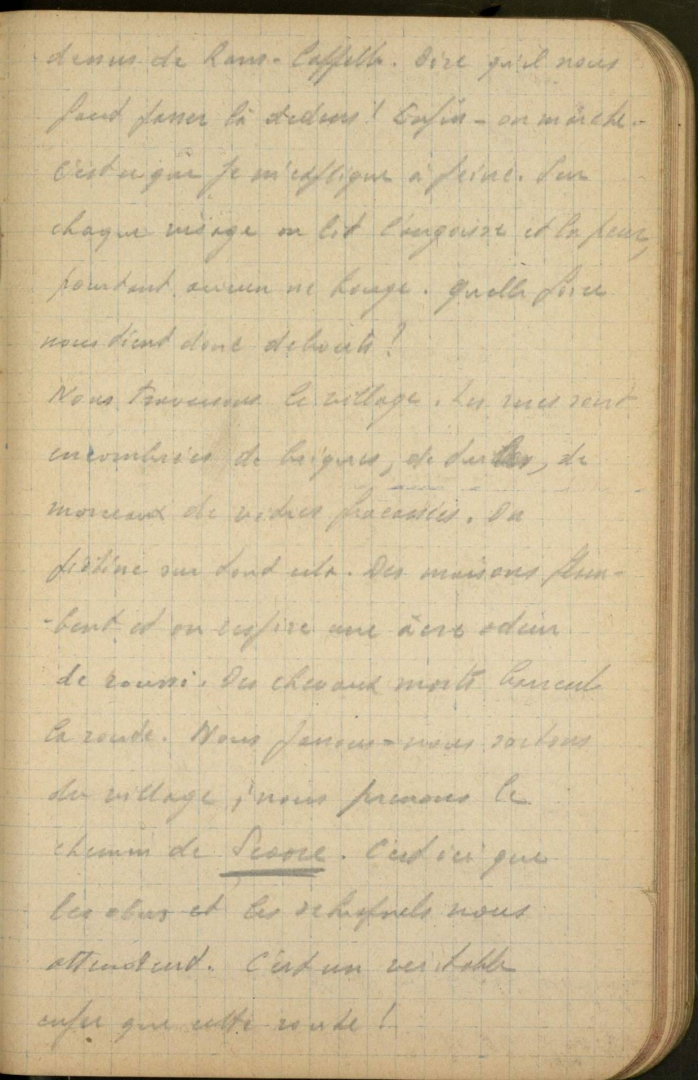 dessus de Rams-Cappelle. Dire qu'il nous
faut passer là dedans! Enfin - on marche -
C'est ce que je m'explique à peine. Sur
chaque visage on lit l'angoisse et la peur,
pourtant aucun ne bouge. Quelle force
nous tient donc debouts?
Nous traversons le village. Les rues sont
encombrées de briques, de tuiles, de
morceaux de vitres fracassées. On
piétine sur tout cela. Des maisons flam-
-bent et on respire une âcre odeur
de roussi. Des chevaux morts barrent
la route. Nous passons - nous sortons
du village, nous prenons le
chemin de Scoore. C'est ici que
les obus et les schrapnels nous
attendent. C'est un veritable
enfer que cette route!